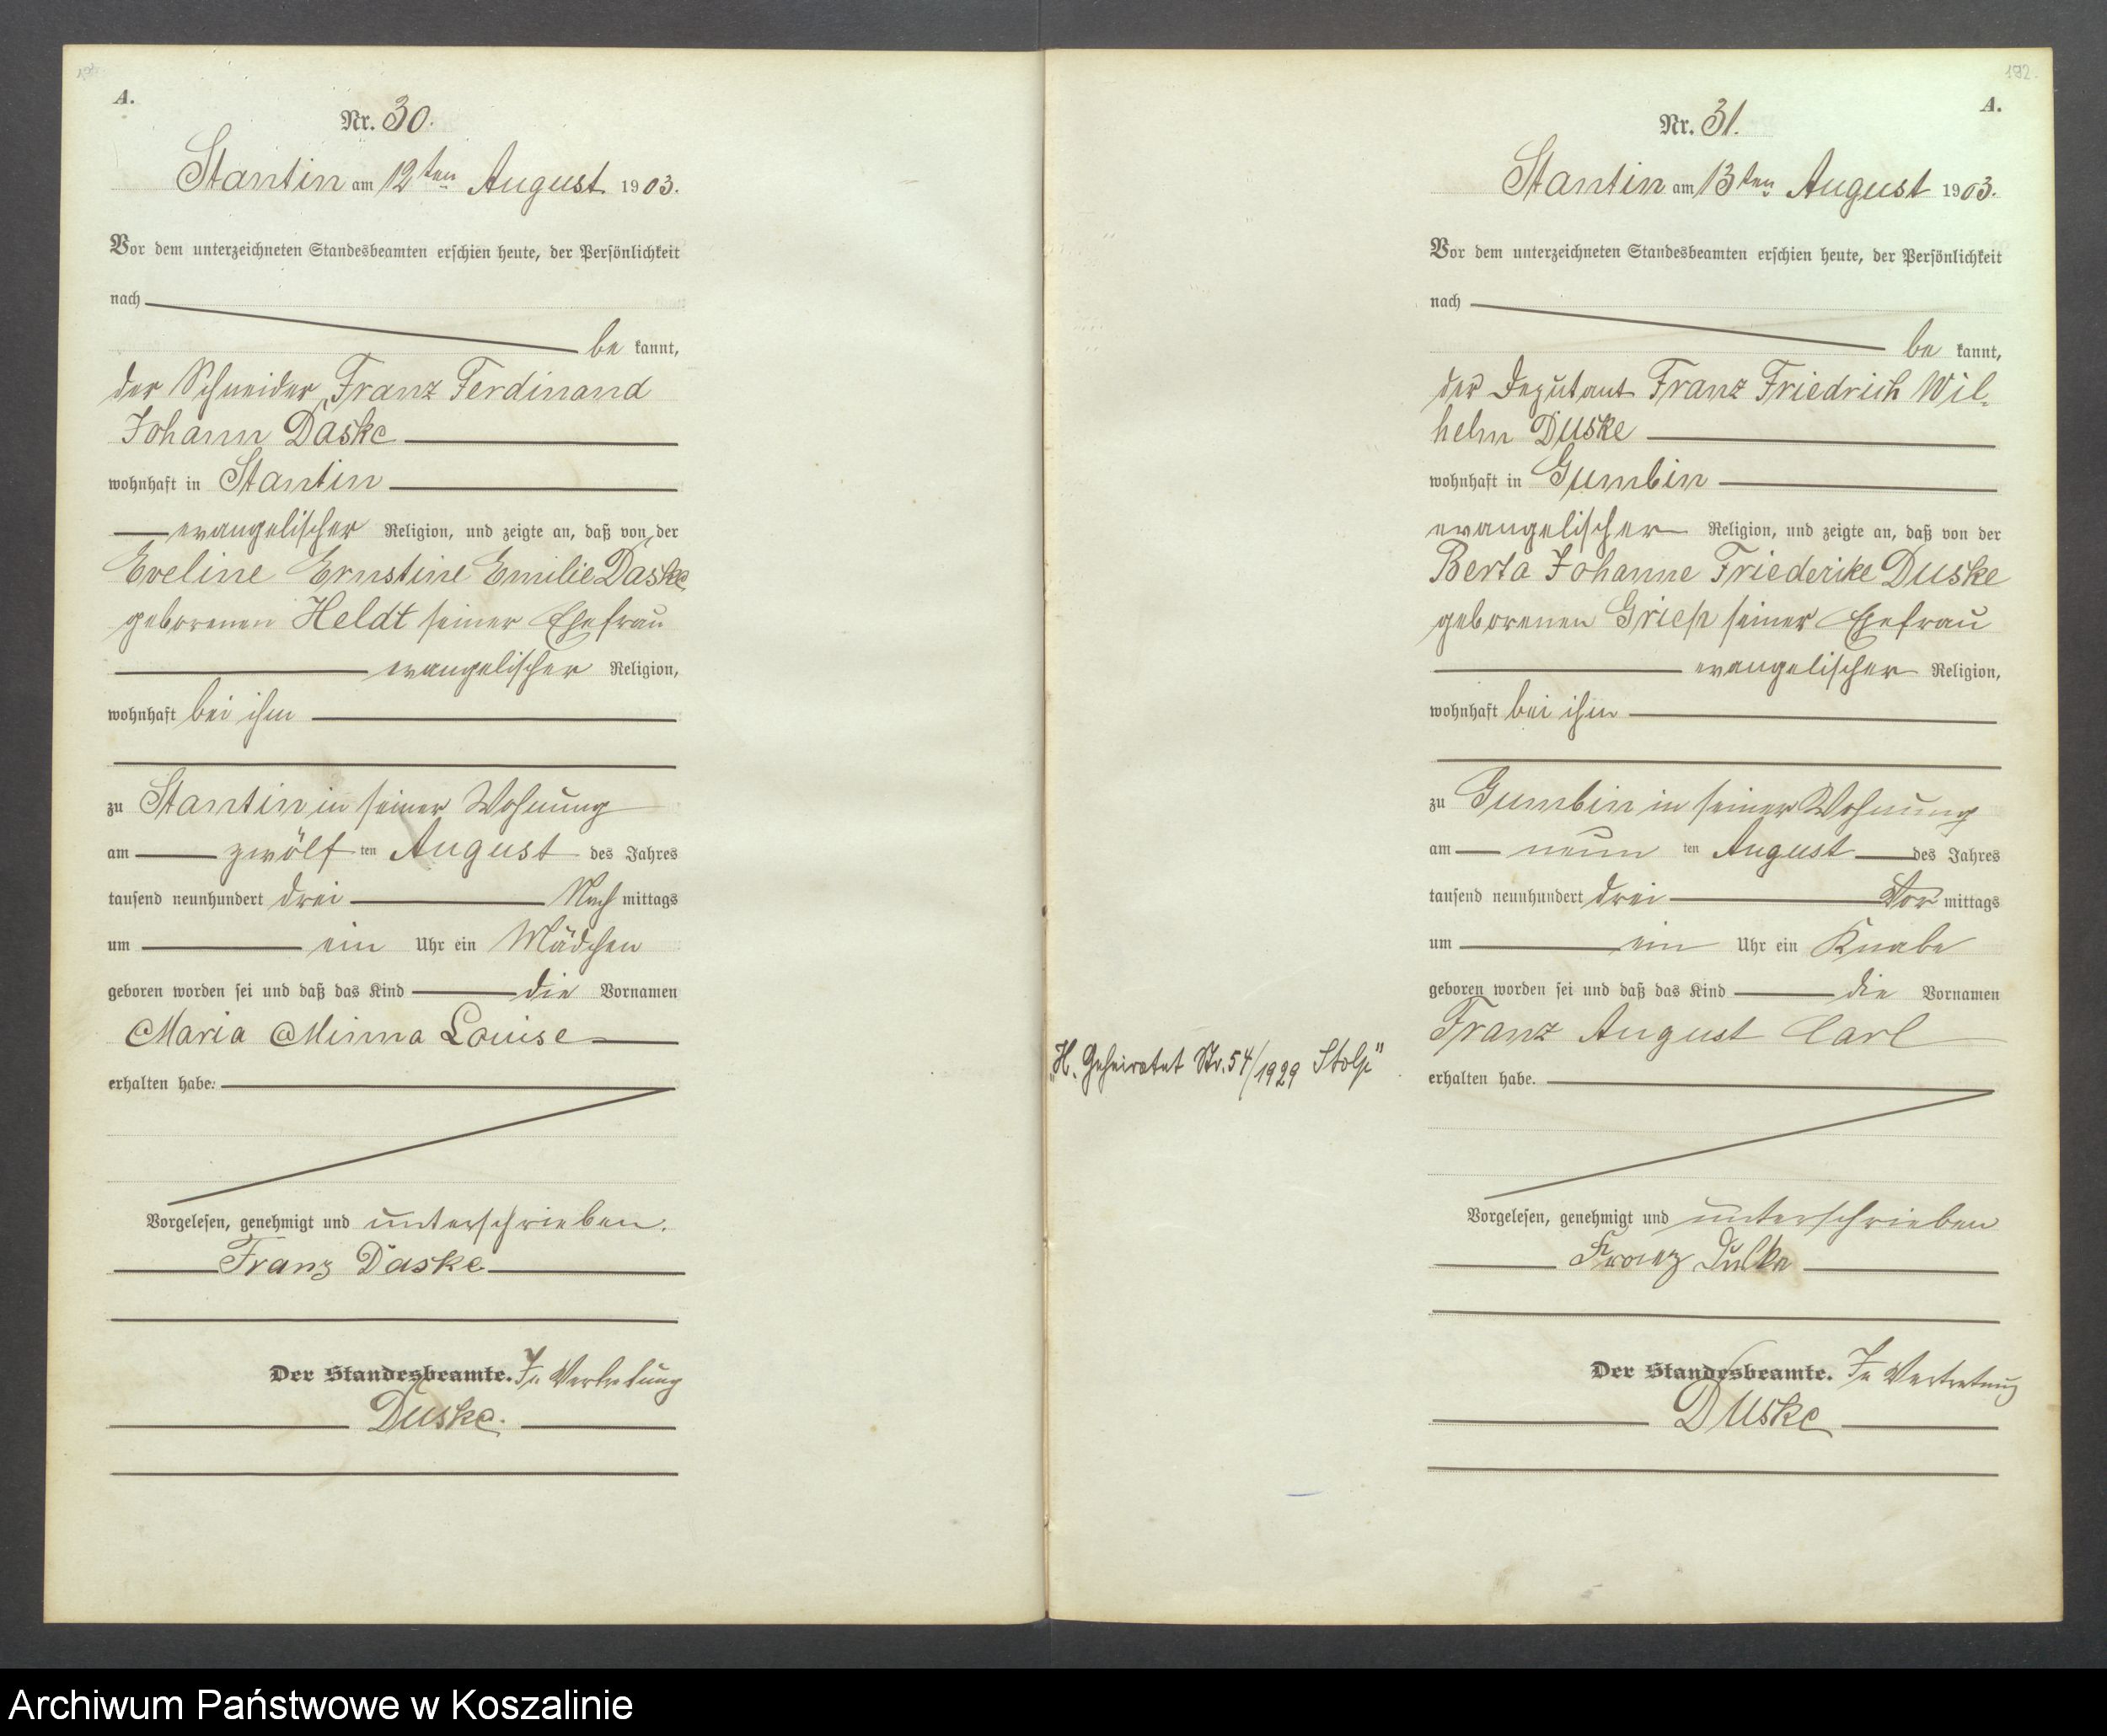 A.
Nr. 30.
Stantin am 12ten August 1903.
Vor dem unterzeichneten Standesbeamten erschien heute, der Persönlichkeit
nach
be kannt,
der Schneider, Franz Ferdinand
Johann Daske
wohnhaft in Stantin
evangelischer Religion, und zeigte an, daß von der
Eveline Ernstine Emilie Daske
geborenen Heldt seiner Ehefrau
evangelischer Religion,
wohnhaft bei ihm
zu Stantin in seiner Wohnung
am zwölf ten August des Jahres
tausend neunhundert drei Nach mittags
um ein Uhr ein Mädchen
geboren worden sei und daß das Kind die Vornamen
Maria Minna Louise
erhalten habe.
Vorgelesen, genehmigt und unterschrieben.
Franz Daske
Der Standesbeamte. In Vertretung
Duske.
192.
A.
Nr. 31.
Stantin am 13ten August 1903.
Vor dem unterzeichneten Standesbeamten erschien heute, der Persönlichkeit
nach
be kannt,
der Deputant Franz Friedrich Wil-
helm Duske
wohnhaft in Gumbin
evangelischer Religion, und zeigte an, daß von der
Berta Johanne Friederike Duske
geborenen Griep seiner Ehefrau
evangelischer Religion,
wohnhaft bei ihm
zu Gumbin in seiner Wohnung
am neun ten August des Jahres
tausend neunhundert drei Vor mittags
um ein Uhr ein Knabe
geboren worden sei und daß das Kind die Vornamen
Franz August Carl
"H. Geheiratet Nr. 54/1929 Stolp"
erhalten habe.
Vorgelesen, genehmigt und unterschrieben
Franz Duske
Der Standesbeamte. In Vertretung
Duske
Archiwum Państwowe w Koszalinie